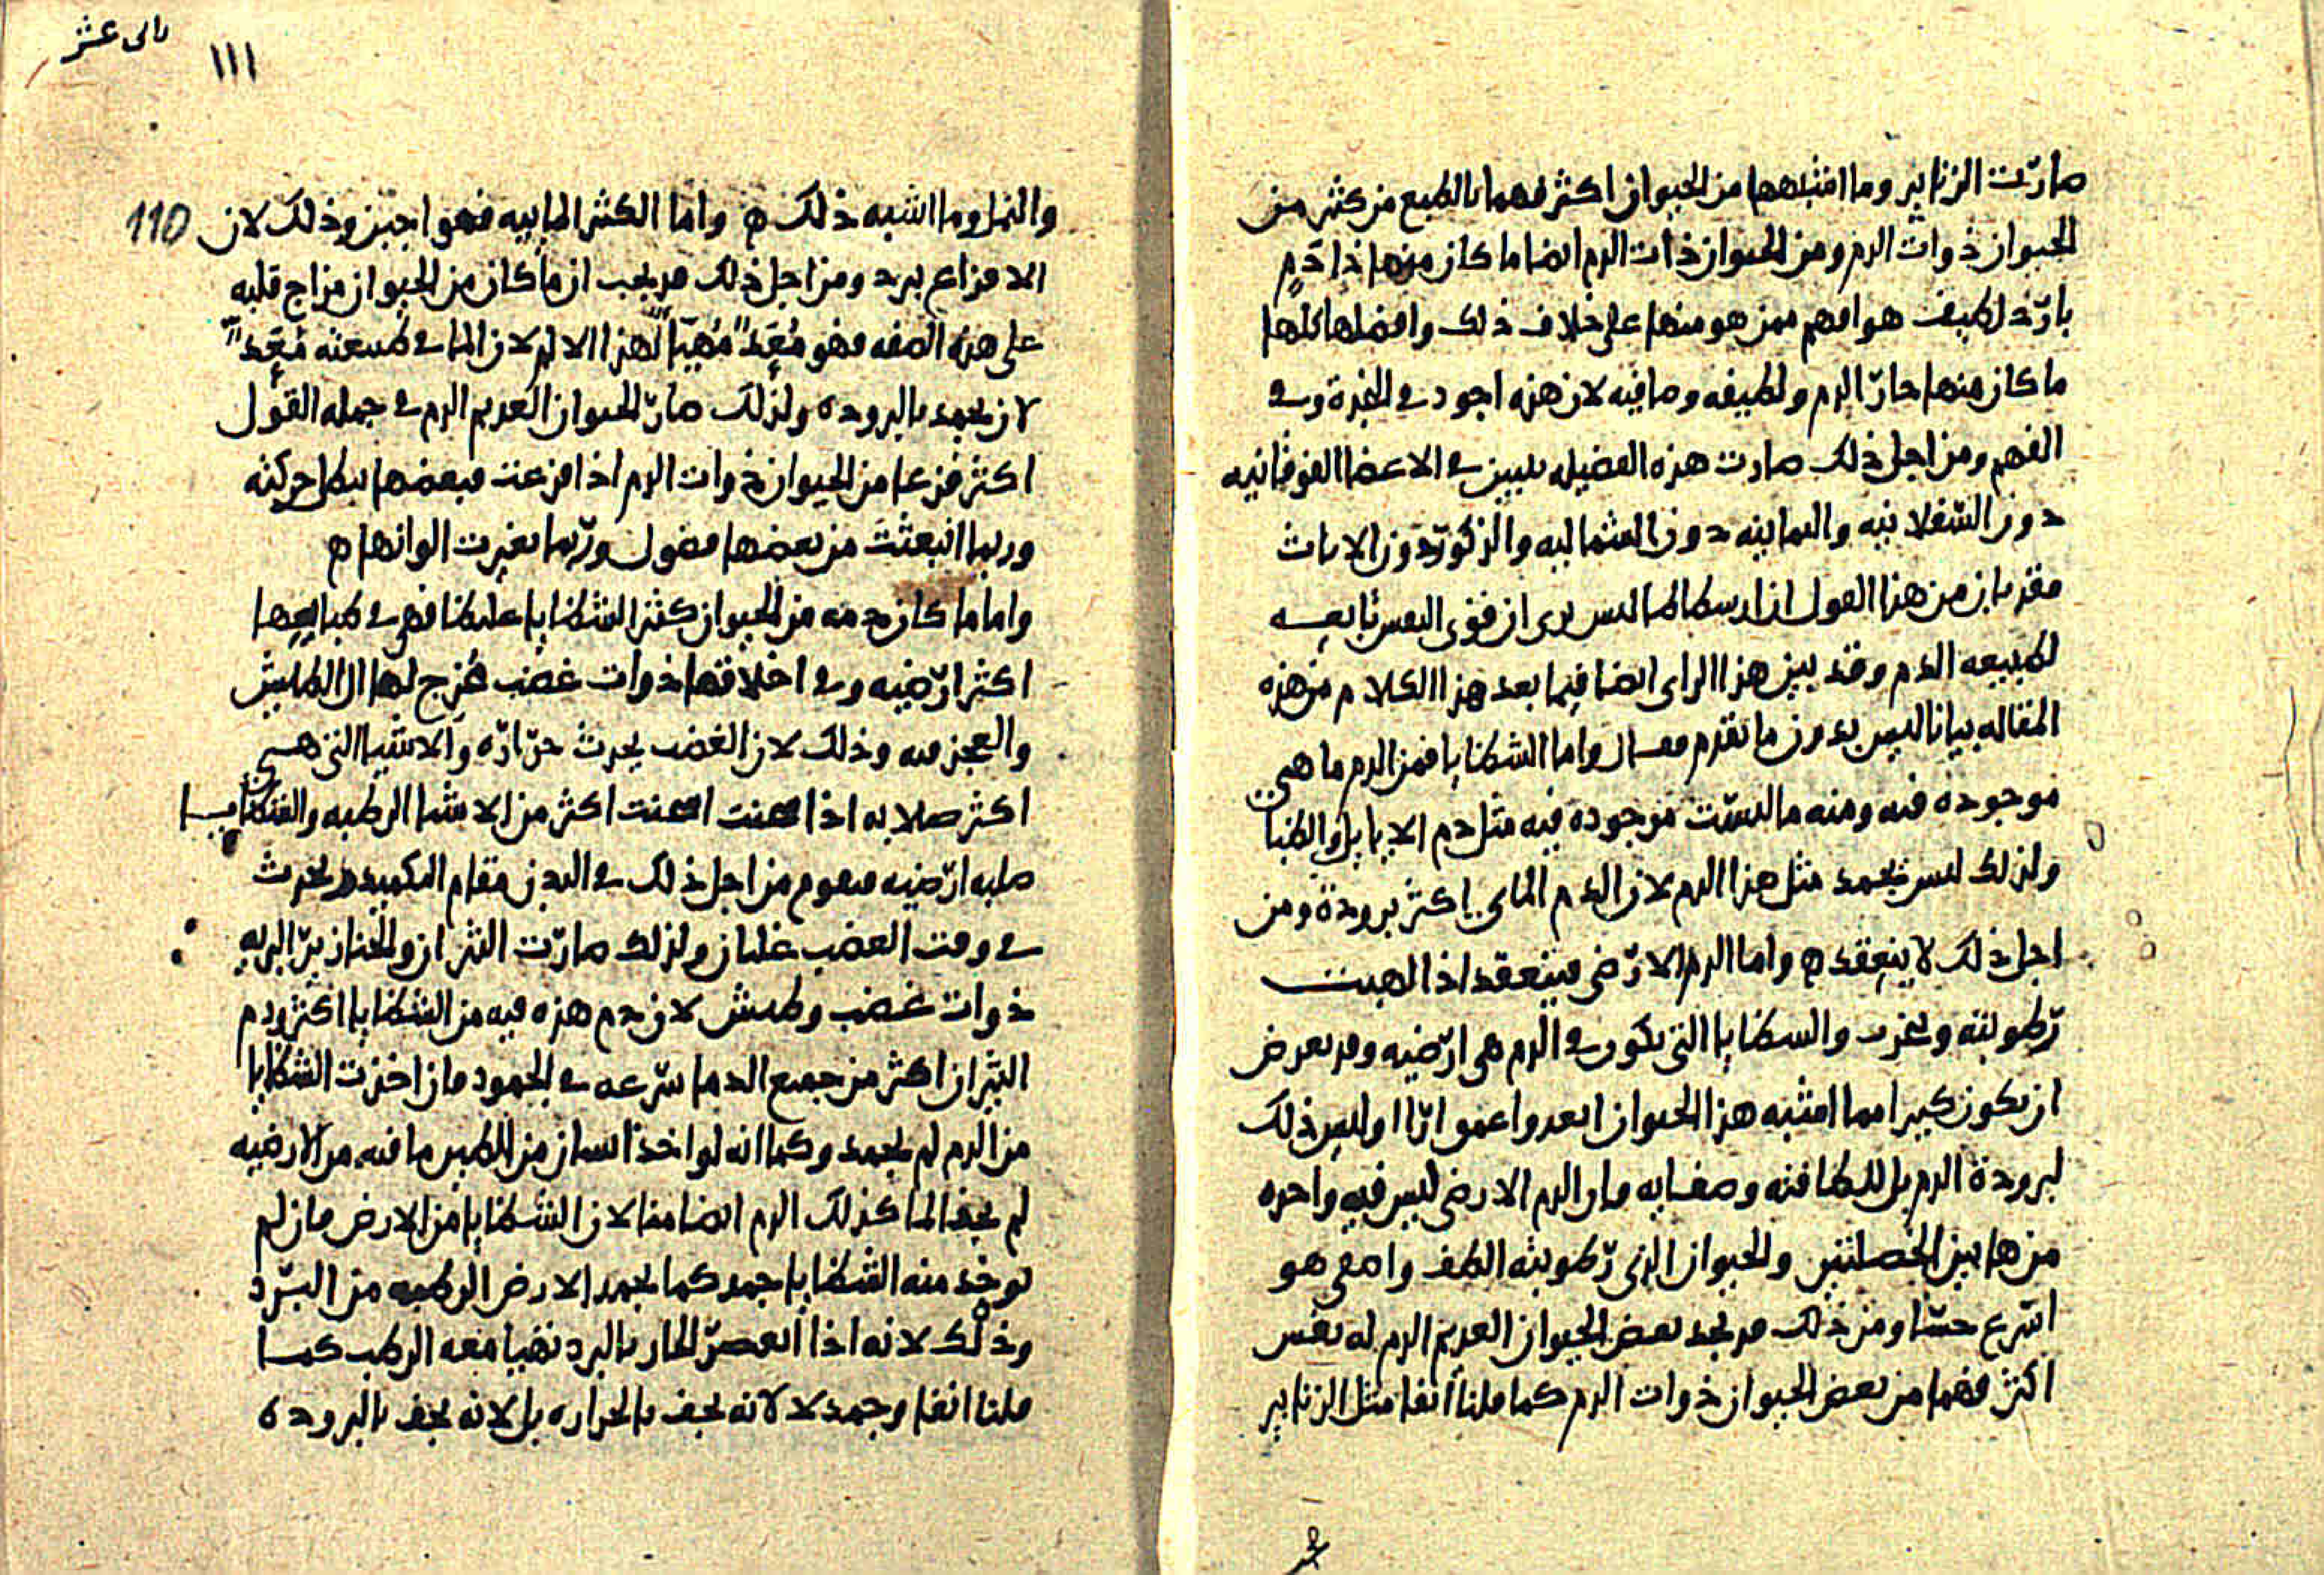 صارت الزنابير وما اشبهها من الحيوان اكثر فهما بالطبع من كثير من
الحيوان ذوات الدم ومن الحيوان ذات الدم ايضا ما كان منها ذا دم
بارد لطيف هو افهم ممن هو منها على خلاف ذلك وافضلها كلها
ما كان منها حار الدم ولطيفه وصافيه لان هذه اجود في النجدة وفي
الفهم ومن اجل ذلك صارت هذه الفضيله تبين في الاعضا الفوقانيه
دون السفلانيه واليمانيه دون الشماليه والذكور دون الاناث
فقد بان من هذا القول ان ارسطاطاليس يرى ان قوى النفس تابعه
لطبيعه الدم وقد بين هذا الراى ايضا فيما بعد هذا الكلام من هذه
المقاله بيانا ليس بدون ما تقدم فقال واما الشظايا فمن الدم ما هي
موجودة فيه ومنه ما ليست موجودة فيه مثل دم الايايل والظبا
ولذلك ليس يجمد مثل هذا الدم لان الدم المائي اكثر برودة ومن
اجل ذلك لا ينعقد ه واما الدم الارضي فينعقد اذا
رطوبته والشظايا التي تكون في الدم هي ارضيه وقد يعرض
ان يكون كبير امما اشبه هذا الحيوان ابعد واعمق اراا وليس ذلك
لبرودة الدم بل للطافته وصفايه فان الدم الارضي ليس فيه واحده
من هاتين الخصلتين والحيوان الذي رطوبته الطف واصفى هو
اسرع حسا ومن ذلك قد نجد بعض الحيوان العديم الدم له نفس
اكثر فهما من بعض الحيوان ذوات الدم كما قلنا انفا مثل الزنابير
بالى عشر
١١١
110
والنمل وما اشبه ذلك ه واما الكثير المائيه فهو اجبن وذلك لان
الافزاع يبرد ومن اجل ذلك قد يجب ان ما كان من الحيوان مزاج قلبه
على هذه الصفه فهو مُعَدّ مُهيّا لهذا الالم لان الما في طبيعته مُعَدّ
لان يجمد بالبروده ولذلك صار الحيوان العديم الدم في جمله القول
اكثر فزعا من الحيوان ذوات الدم اذا فزعت فبعضها تبطل حركته
وربما انبعثت من بعضها فضول وربما تغيرت الوانها ه
واما ما كان دمه من الحيوان كثير الشظايا غليظا فهي في طبايعها
اكثر ارضيه وفي اخلاقها ذوات غضب الطيش
والعجز فيه وذلك لان الغضب يحدث حرارة والاشيا التي هي
اكثر صلابه اذا سخنت اسخنت اكثر من الاشيا الرطبه والشظايا
صلبه ارضيه فيقوم من اجل ذلك في البدن مقام التكميد ويحدث
في وقت الغضب غليان ولذلك صارت الثيران والخنازير البريه
ذوات غضب وطيش لان دم هذه فيه من الشظايا اكثر ودم
الثيران اكثر من جميع الدما سرعه في الجمود فان اخذت الشظايا
من الدم لم يجمد وكما انه لو اخذ انسان من الطين ما فيه من الارضيه
لم يجف الما كذلك الدم ايضا هنا لان الشظايا من الارض فان لم
توخذ منه الشظايا جمد كما يجمد الارض الرطبه من البرد
وذلك لانه اذا انعصر الحار بالبرد تفيا معه الرطب كما
قلنا انفا وجمد لا لانه يجف بالحراره بل لانه يجف بالبروده